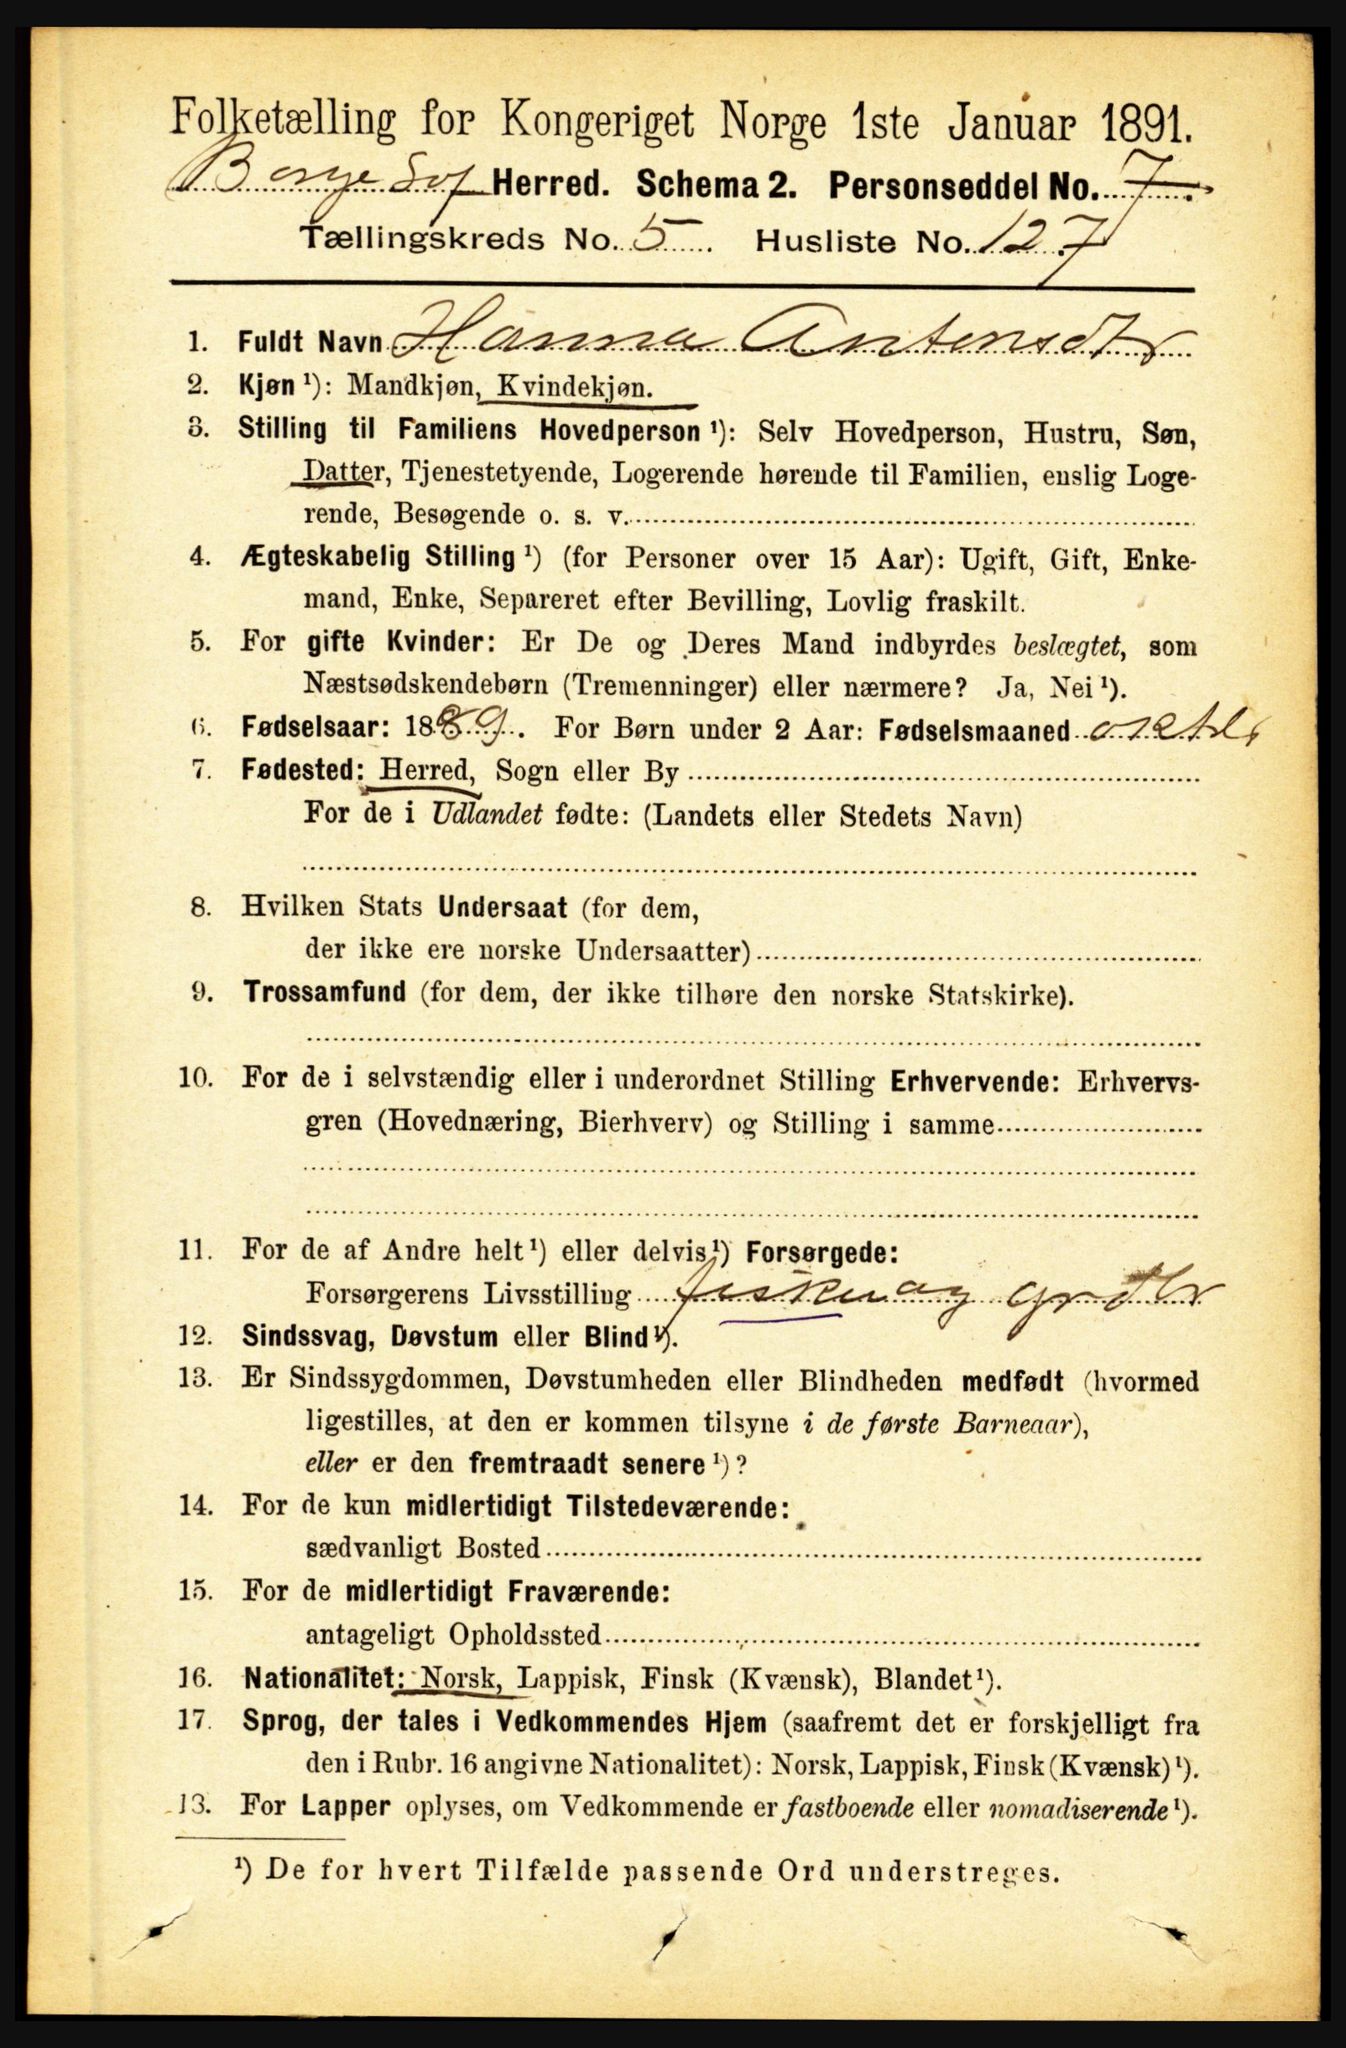 Folketælling for Kongeriget Norge 1ste Januar 1891.
Borge Lof Herred. Schema 2. Personseddel No. 7.
Tællingskreds No. 5. Husliste No. 127
1. Fuldt Navn Hanna Antonsdtr
2. Kjøn ¹): Mandkjøn, Kvindekjøn.
3. Stilling til Familiens Hovedperson ¹): Selv Hovedperson, Hustru, Søn,
Datter, Tjenestetyende, Logerende hørende til Familien, enslig Loge-
rende, Besøgende o. s. v.
4. Ægteskabelig Stilling ¹) (for Personer over 15 Aar): Ugift, Gift, Enke-
mand, Enke, Separeret efter Bevilling, Lovlig fraskilt.
5. For gifte Kvinder: Er De og Deres Mand indbyrdes beslægtet, som
Næstsødskendebørn (Tremenninger) eller nærmere? Ja, Nei ¹).
6. Fødselsaar: 1889. For Børn under 2 Aar: Fødselsmaaned oktbr
7. Fødested: Herred, Sogn eller By
For de i Udlandet fødte: (Landets eller Stedets Navn)
8. Hvilken Stats Undersaat (for dem,
der ikke ere norske Undersaatter)
9. Trossamfund (for dem, der ikke tilhøre den norske Statskirke).
10. For de i selvstændig eller i underordnet Stilling Erhvervende: Erhvervs-
gren (Hovednæring, Bierhverv) og Stilling i samme
11. For de af Andre helt ¹) eller delvis ¹) Forsørgede:
Forsørgerens Livsstilling fisker og grdbr
12. Sindssvag, Døvstum eller Blind ¹).
13. Er Sindssygdommen, Døvstumheden eller Blindheden medfødt (hvormed
ligestilles, at den er kommen tilsyne i de første Barneaar),
eller er den fremtraadt senere ¹)?
14. For de kun midlertidigt Tilstedeværende:
sædvanligt Bosted
15. For de midlertidigt Fraværende:
antageligt Opholdssted
16. Nationalitet: Norsk, Lappisk, Finsk (Kvænsk), Blandet ¹).
17. Sprog, der tales i Vedkommendes Hjem (saafremt det er forskjelligt fra
den i Rubr. 16 angivne Nationalitet): Norsk, Lappisk, Finsk (Kvænsk) ¹).
18. For Lapper oplyses, om Vedkommende er fastboende eller nomadiserende ¹).
¹) De for hvert Tilfælde passende Ord understreges.